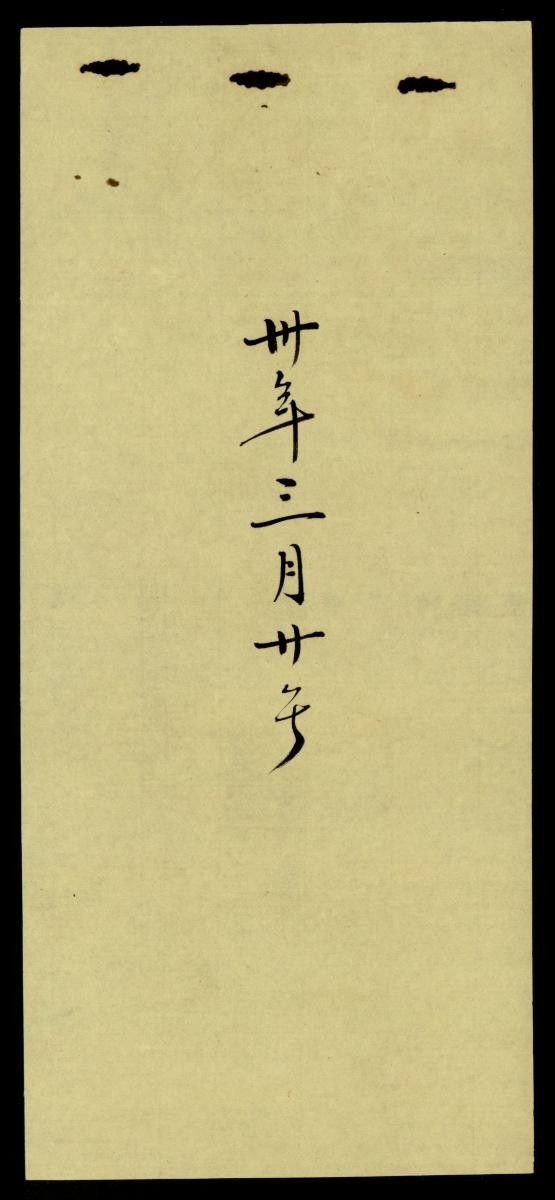 卅年三月廿号